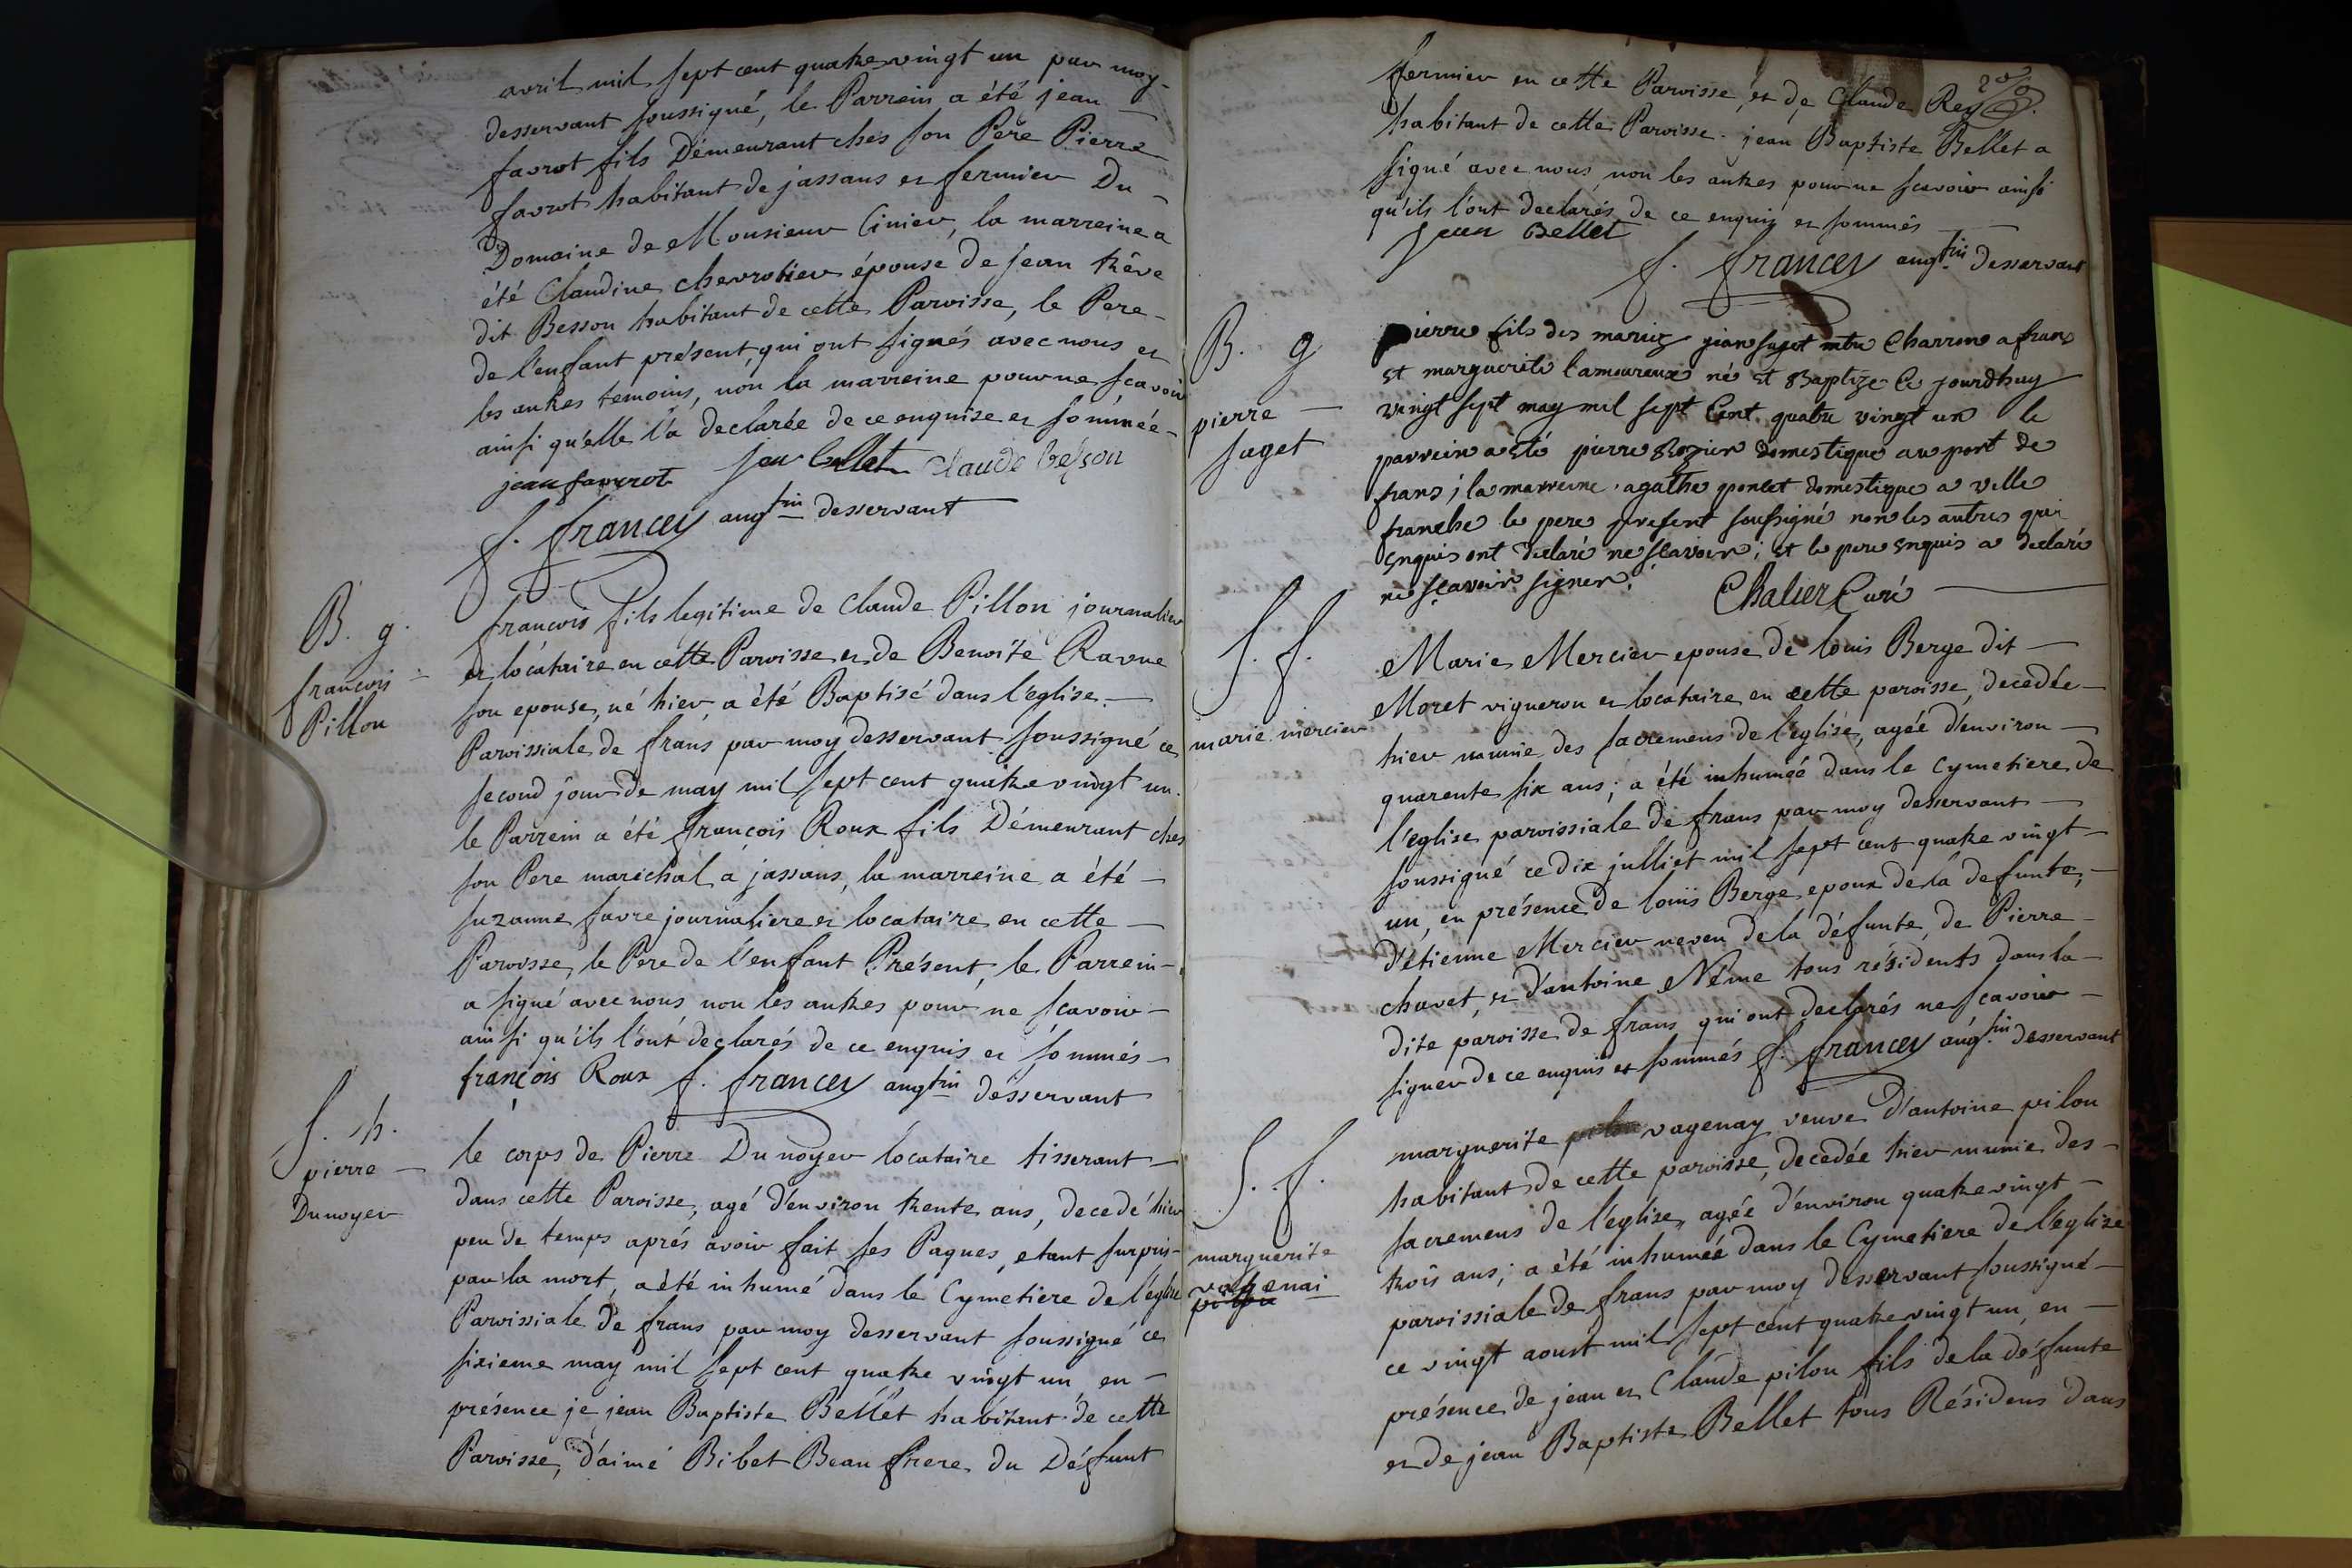 avril mil sept cent quatre vingt un par moy-
desservant soussigné, le Parrein a été jean
favrot fils Démeurant ches son Pere Pierre
favrot habitant de jassans et fermier Du
Domaine de Monsieur Cinier, la marreine a
été Claudine chevrotier épouse de jean trêve
dit Besson habitant de cette Paroisse, le Pere-
de l'enfant présent, qui ont signés avec nous et
les autres temoins, non la marreine pour ne scavoir
ainsi qu'elle l'a declarée de ce enquise et sommée-
jean favrot jean bellet Claude besson
f. francey aug.tin desservant
B. g.
francois
Pillon
francois fils legitime de Claude Pillon journalier
et locataire en cette Paroisse et de Benoite Ravue
son epouse, né hier, a été Baptisé dans l'eglise-
Paroissiale de frans par moy desservant soussigné ce
second jour de may mil sept cent quatre vingt un.
le Parrein a été François Roux fils Démeurant ches
son Pere maréchal a jassans, la marreine a été-
suzanne favre journaliere et locataire en cette-
Paroisse, le Pere de l'enfant Présent, le Parrein-
a signé avec nous, non les autres pour ne scavoir-
ainsi qu'ils l'ont declarés de ce enquis et sommés-
françois Roux f. francey aug.tin desservant
S. h.
pierre
Dunoyer
le corps de Pierre Dunoyer locataire tisserant-
dans cette Paroisse, agé d'environ trente ans, decedé hier
peu de temps aprés avoir fait ses Paques, etant surpris-
par la mort, a été inhumé dans le Cymetiere de l'église
Paroissiale de frans par moy desservant soussigné ce
sixieme may mil sept cent quatre vingt un, en-
présence je jean Baptiste Bellet habitant de cette
Paroisse, d'aimé Bibet Beau frere du Défunt
fermier en cette Paroisse, et de Claude Rey
habitant de cette Paroisse. jean Baptiste Bellet a
signé avec nous, non les autres pour ne scavoir ainsi
qu'ils l'ont declarés de ce enquis et sommés
jean Bellet
f. francey aug.tin desservant
B. g
pierre
saget
pierre fils des mariez jean saget mtre Charron a frans
et marguerite lamoureux né et Baptize Ce jourdhuy
vingt sept may mil sept Cent quatre vingt un le
parrein a eté pierre Rozier domestique au port de
frans; la marreine agathe poncet domestique a ville
franche le pere present soussigné non les autres qui
enquis ont declaré ne scavoir; et le pere enquis a declaré
ne scavoir signer. Chalier Curé
S. f.
marie mercier
Marie Mercier epouse de louis Berge dit-
Moret vigneron et locataire en cette paroisse, decedée-
hier munie des sacremens de l'eglise, agée d'environ-
quarente six ans; a été inhumée dans le Cymetiere de
l'eglise paroissiale de frans par moy desservant-
soussigné ce dix julliet mil sept cent quatre vingt-
un, en présence de louis Berge epoux de la defunte,-
d'étienne Mercier neveu de la défunte, de Pierre-
chavet, et d'antoine Néme tous résidents dans la-
dite paroisse de frans qui ont declarés ne scavoir-
signer de ce enquis et sommés f. francey aug.tin desservant
S. f.
marguerite
vagenai
pilon
marguerite pilon vagenay veuve d'antoine pilon
habitant de cette paroisse, decedée hier munie des-
sacremens de l'eglise, agée d'environ quatre vingt-
trois ans; a été inhumée dans le Cymetiere de l'eglise
paroissiale de frans par moy desservant soussigné-
ce vingt aoust mil sept cent quatre vingt un, en-
présence de jean et Claude pilon fils de la défunte
et de jean Baptiste Bellet tous Résidens dans